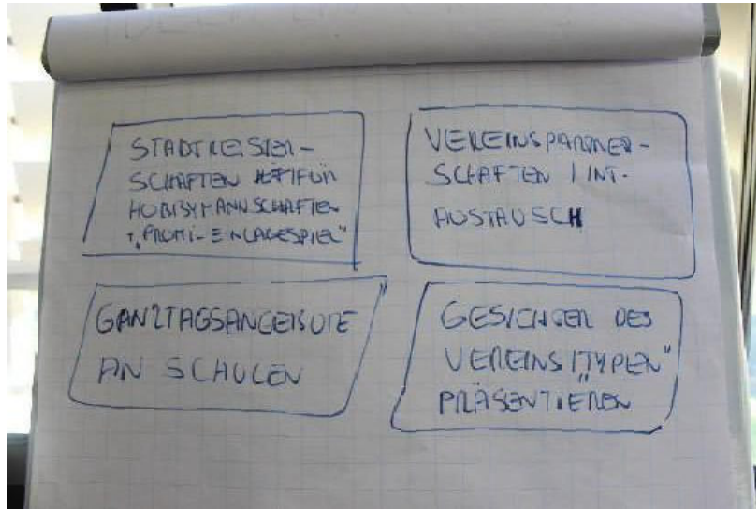 STADTMEISTER-
SCHAFTEN FÜR
HOBBYMANNSCHAFTEN
+ „PROMI-EINLAGESPIEL“
VEREINSPARTNER-
SCHAFTEN / INT.
AUSTAUSCH
GANZTAGSANGEBOTE
AN SCHULEN
GESICHTER DES
VEREINS / „TYPEN“
PRÄSENTIEREN